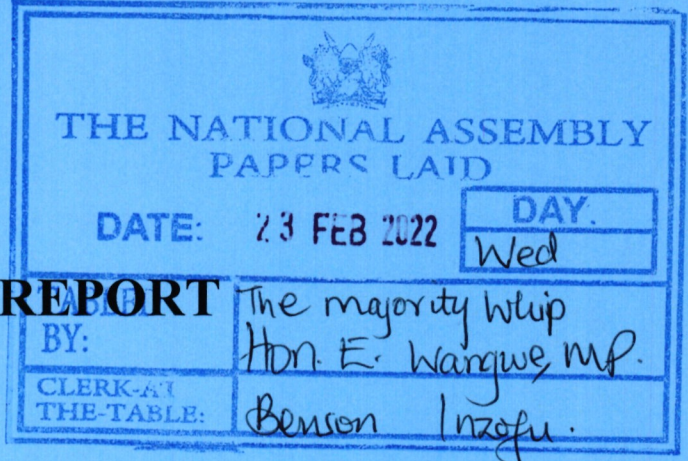 THE NATIONAL ASSEMBLY
PAPERS LAID
DATE: 23 FEB 2022
DAY.
Wed
REPORT
TABLED
BY:
The majority Whip
Hon. E. Wangwe, MP.
CLERK-AT
THE-TABLE:
Benson Inzofu.